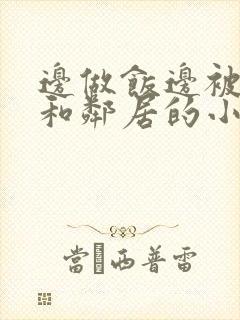 邊做飯邊被
和鄰居的小
當 西普雷